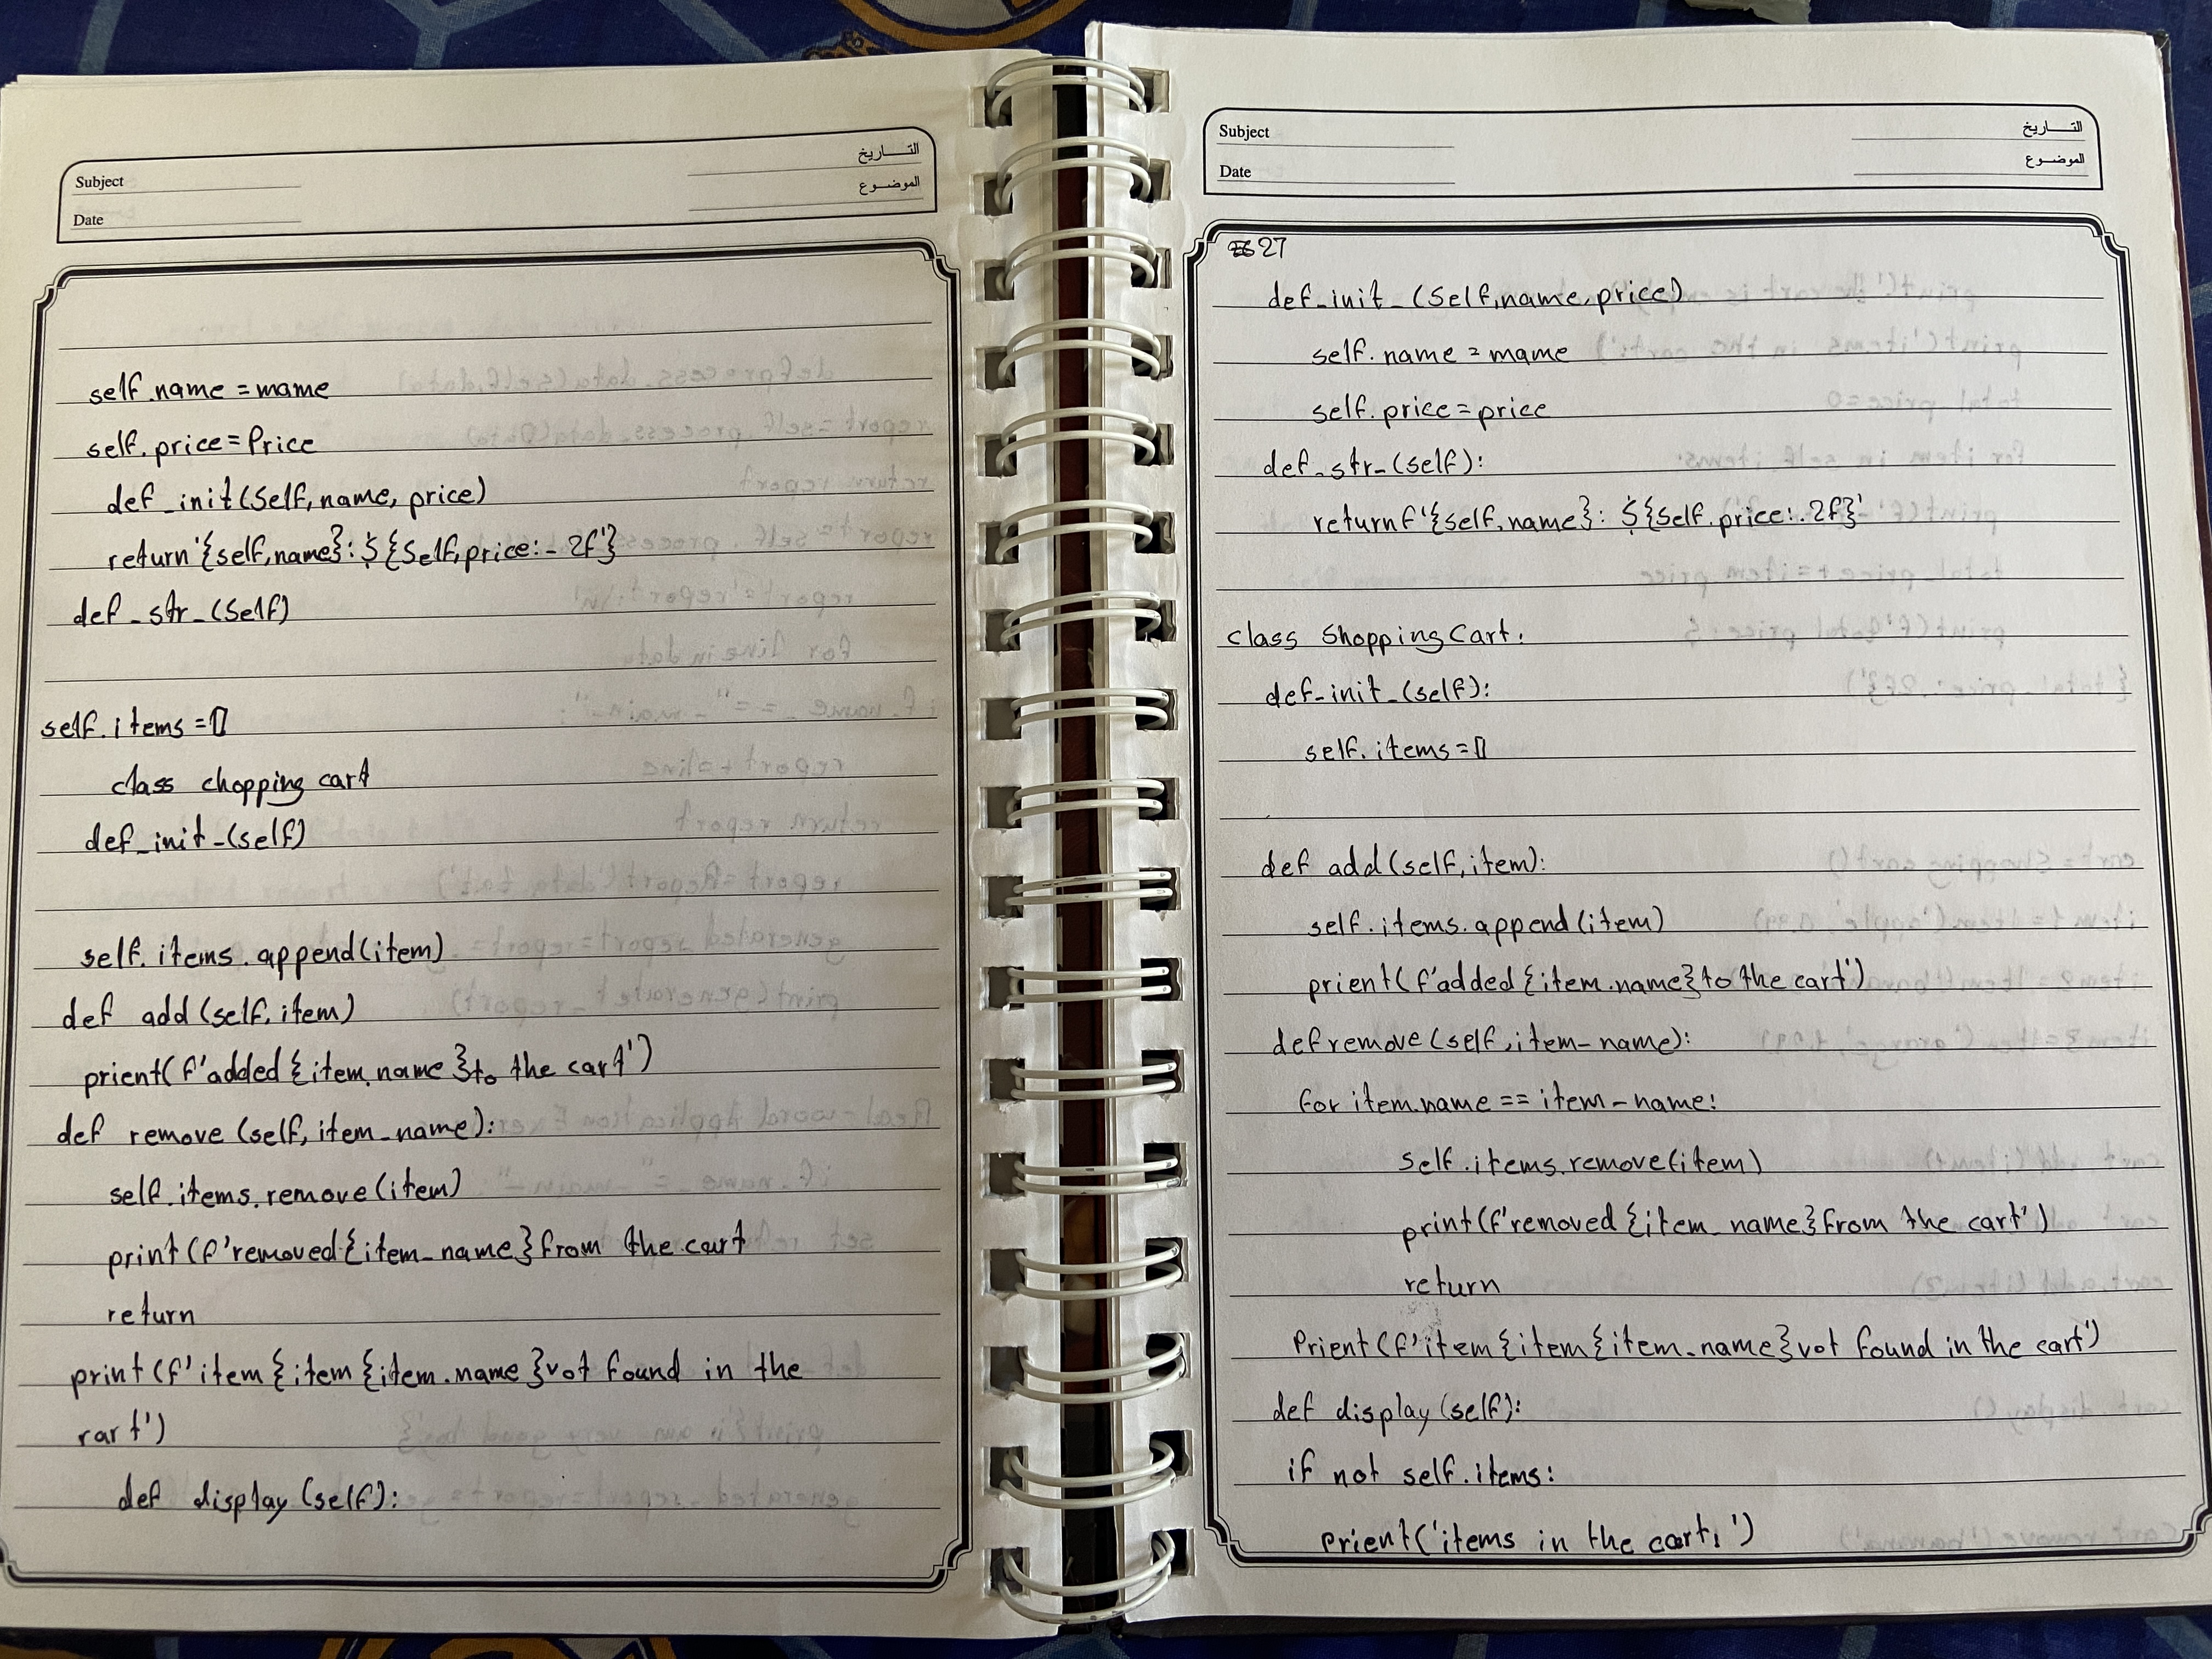 Subject
Date
التـــاريخ
الموضـــوع
self.name = name
self.price = Price
def _init(self,name,price)
return '{self,name}: $ {self,price:-2f'}
def _str_(self)
self.items = []
class chopping cart
def _init_(self)
self.items.append(item)
def add(self,item)
prient(f'added{item,name}to the cart')
def remove(self,item_name):
self.items.remove(item)
print(f'removed{item_name}from the cart
return
print(f'item{item{item.name}vot found in the
rart')
def display(self):
Subject
Date
التـــاريخ
الموضـــوع
27
def_init_(self,name,price)
self.name = name
self.price = price
def_str_(self):
return f'{self.name}: $ {self.price:.2f}'
class shoppingcart:
def_init_(self):
self.items = []
def add(self,item):
self.items.append(item)
prient(f'added{item.name}to the cart')
def remove(self,item_name):
for item.name == item_name:
self.items.remove(item)
print(f'removed{item_name}from the cart')
return
Prient(f'item{item{item_name}vot found in the cart')
def display(self):
if not self.items:
prient('items in the cart:')